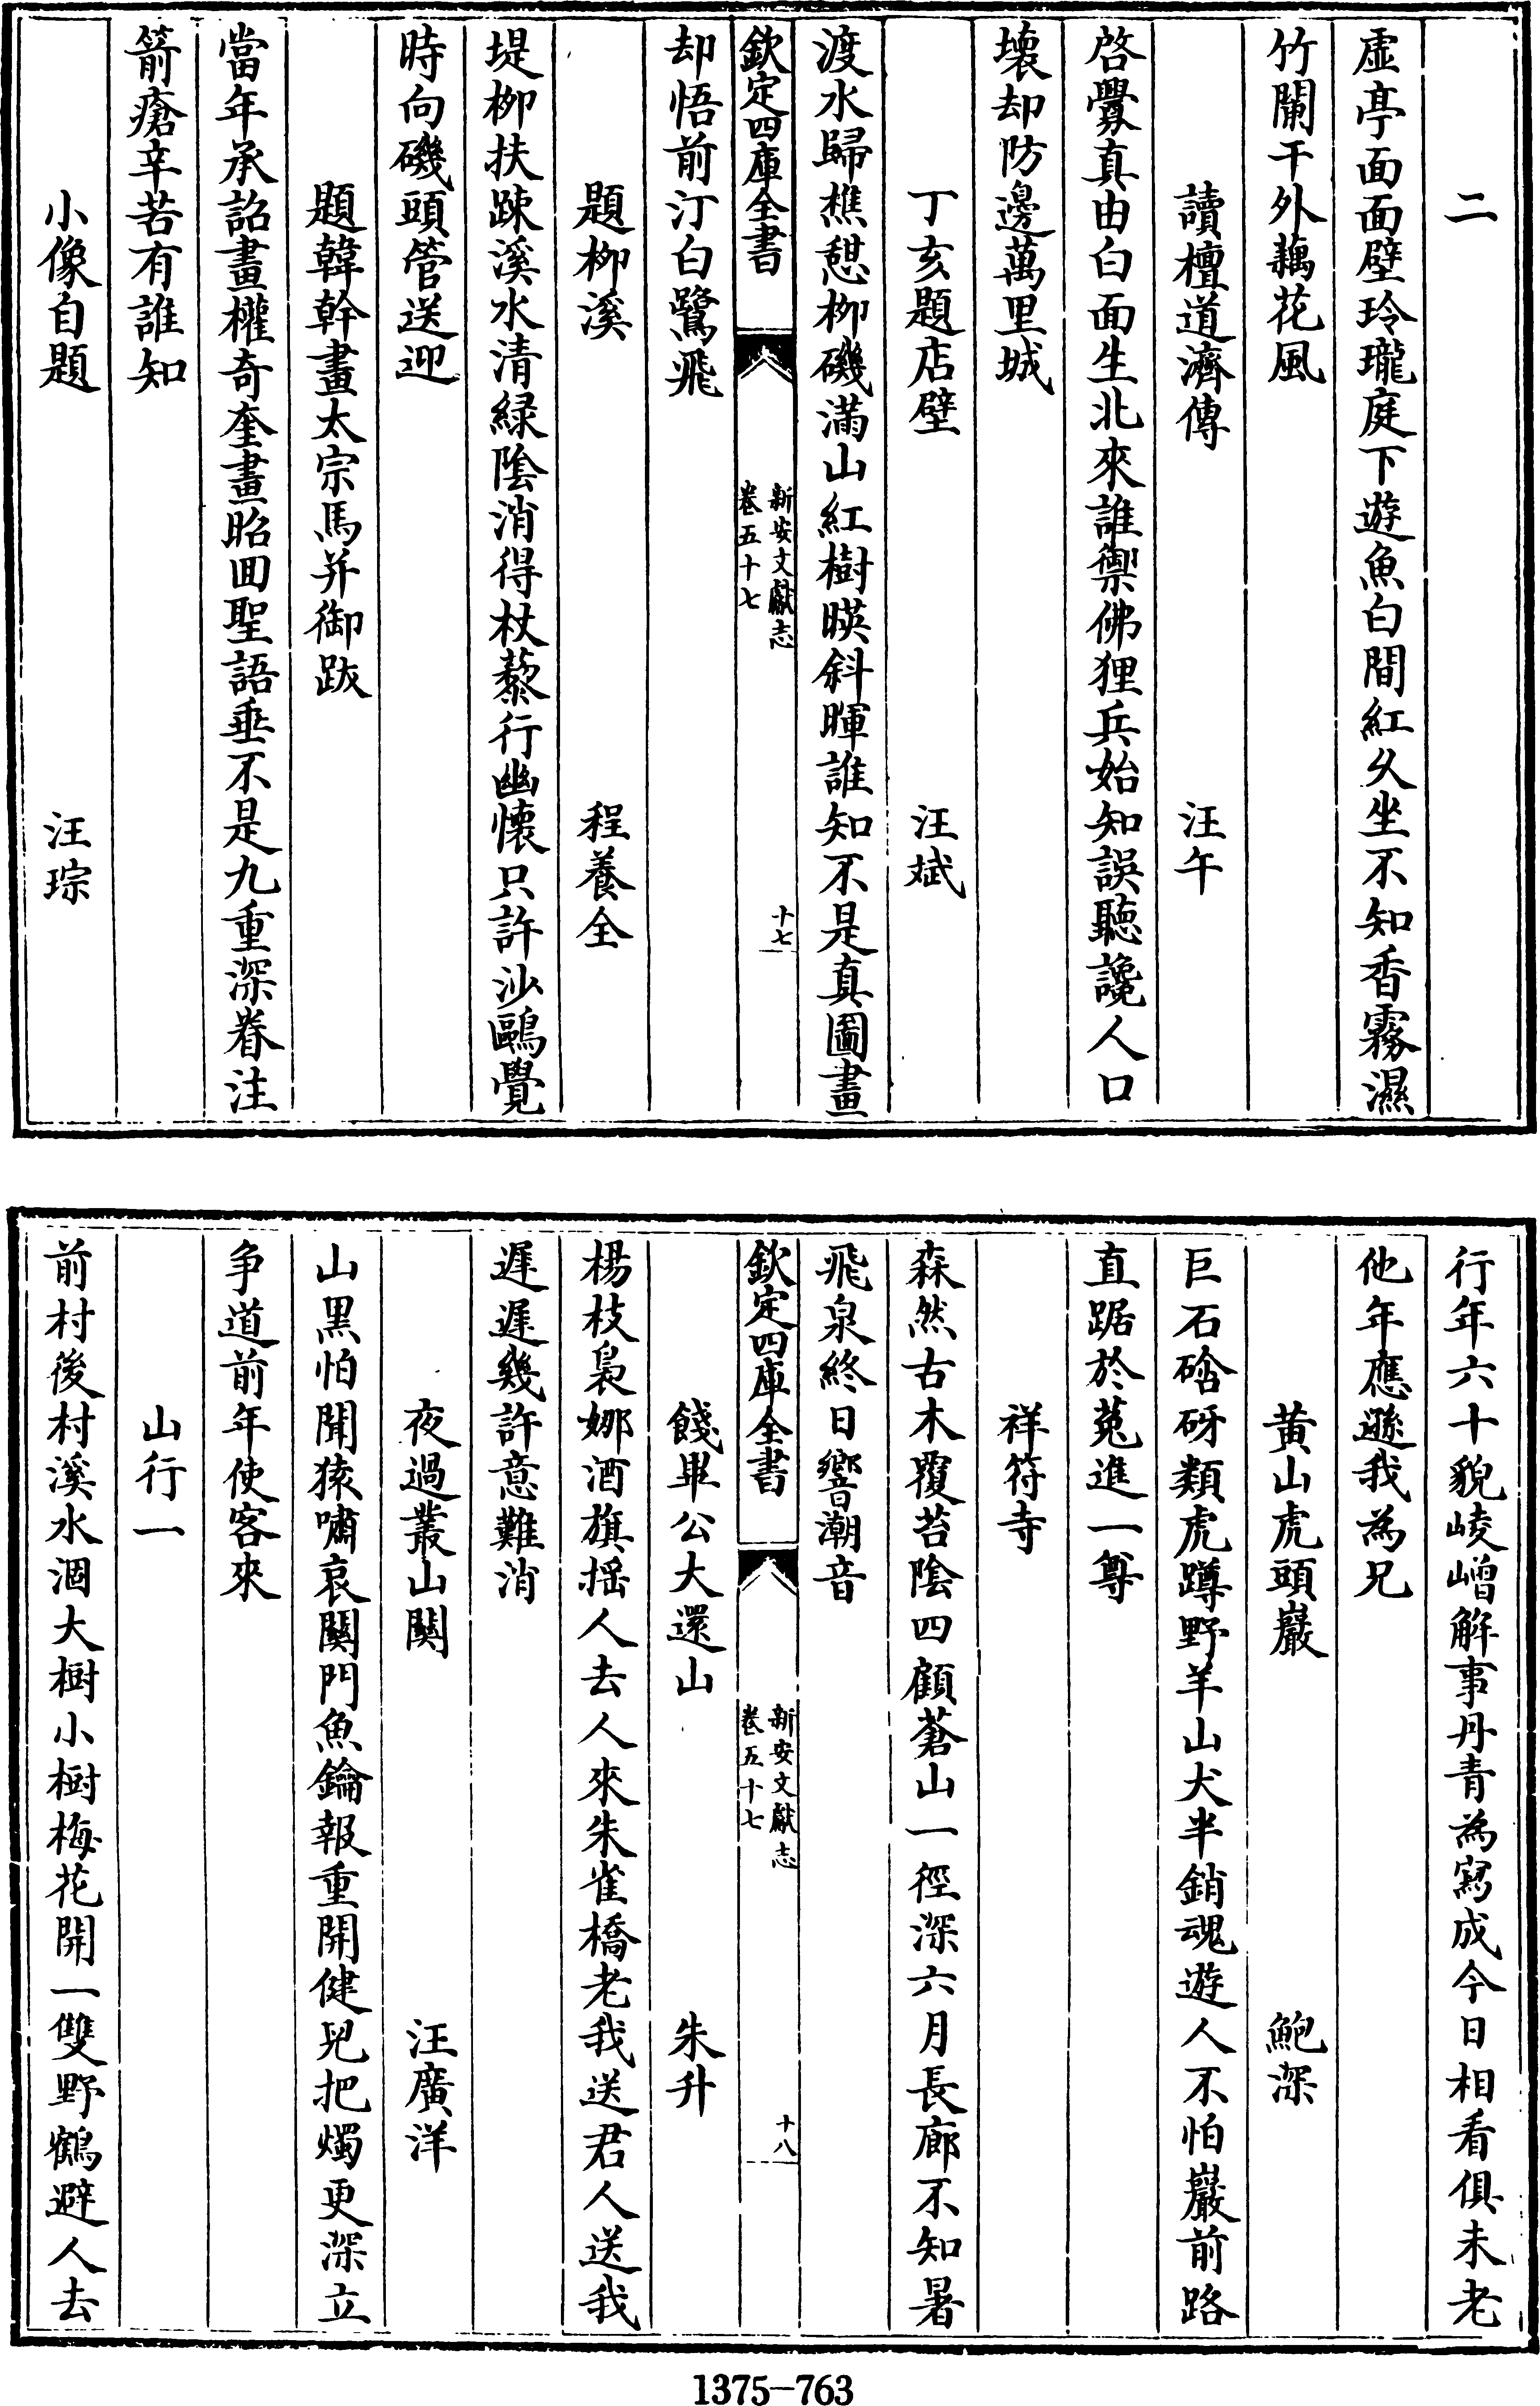 二
虛亭面面壁玲瓏庭下遊魚白間紅乆坐不知香霧濕
竹闌干外藕花風
讀檀道濟傳 汪午
啓釁真由白面生北來誰禦佛狸兵始知誤聽讒人口
壞却防邊萬里城
丁亥題店壁 汪斌
渡水歸樵憩柳磯滿山紅樹暎斜暉誰知不是真圖畫
欽定四庫全書 新安文獻志 卷五十七 十七
却悟前汀白鷺飛
題柳溪 程養全
堤柳扶踈溪水清緑隂消得杖藜行幽懷只許沙鷗覺
時向磯頭管送迎
題韓幹畫太宗馬并御跋
當年承詔畫權奇奎畫昭回聖語垂不是九重深眷注
箭瘡辛苦有誰知
小像自題 汪琮
行年六十貌崚嶒解事丹青為寫成今日相看俱未老
他年應遜我為兄
黄山虎頭巖 鮑深
巨石硆砑類虎蹲野羊山犬半銷魂遊人不怕巖前路
直踞於菟進一尊
祥符寺
森然古木覆苔隂四顧蒼山一徑深六月長廊不知暑
飛泉終日響潮音
欽定四庫全書 新安文獻志 卷五十七 十八
餞畢公大還山 朱升
楊枝裊娜酒旗揺人去人來朱雀橋老我送君人送我
遲遲幾許意難消
夜過叢山關 汪廣洋
山黒怕聞猿嘯哀關門魚鑰報重開健兒把燭更深立
争道前年使客來
山行一
前村後村溪水涸大樹小樹梅花開一雙野鶴避人去
1375-763